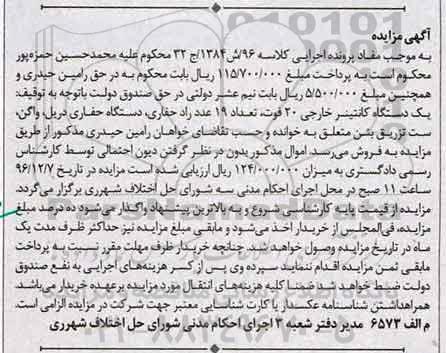 آگهی مزایده
به موجب مفاد پرونده اجرایی کلاسه ۹۶/ش۱۳۸۴/ج ۳۲ محکوم علیه محمدحسین حمزه‌پور
محکوم است به پرداخت مبلغ ۱۱۵/۷۰۰/۰۰۰ ریال بابت محکوم به در حق رامین حیدری و
همچنین مبلغ ۵/۵۰۰/۰۰۰ ریال بابت نیم عشر دولتی در حق صندوق دولت باتوجه به توقیف:
یک دستگاه کانتینر خارجی ۲۰ فوت، تعداد ۱۹ عدد راد حفاری، دستگاه حفاری دریل، واگن،
ست تزریق بتن متعلق به خوانده و حسب تقاضای خواهان رامین حیدری مذکور از طریق
مزایده به فروش می‌رسد. اموال مذکور بدون در نظر گرفتن دیون احتمالی توسط کارشناس
رسمی دادگستری به میزان ۱۲۴/۰۰۰/۰۰۰ ریال ارزیابی شده است مزایده در تاریخ ۹۶/۱۲/۷
ساعت ۱۱ صبح در محل اجرای احکام مدنی سه شورای حل اختلاف شهرری برگزار می‌گردد.
مزایده از قیمت پایه کارشناسی شروع و به بالاترین پیشنهاد واگذار می‌شود ده درصد مبلغ
مزایده، فی‌المجلس از خریدار اخذ می‌شود و مابقی مبلغ مزایده نیز حداکثر ظرف مدت یک
ماه در تاریخ مزایده وصول خواهید شد. چنانچه خریدار ظرف مهلت مقرر نسبت به پرداخت
مابقی ثمن مزایده اقدام ننماید سپرده وی پس از کسر هزینه‌های اجرایی به نفع صندوق
دولت ضبط خواهد شد ضمنا کلیه هزینه‌های انتقال مورد مزایده برعهده خریدار می‌باشد.
همراه‌داشتن شناسنامه عکسدار یا کارت شناسایی معتبر جهت شرکت در مزایده الزامی است.
م الف ۶۵۷۳ مدیر دفتر شعبه ۳ اجرای احکام مدنی شورای حل اختلاف شهرری